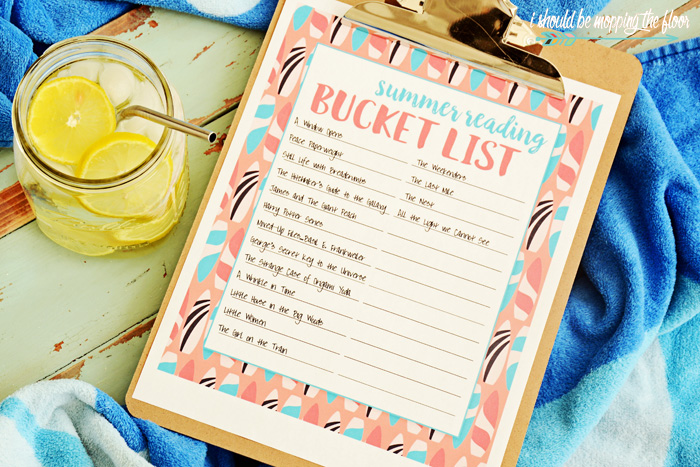 i should be mopping the floor
summer reading
BUCKET LIST
A Window Opens
Peace Paperweight
Still Life with Breadcrumbs
The Hitchhiker's Guide to the Galaxy
James and The Giant Peach
Harry Potter Series
Mixed-Up Files-Basil E. Frankweiler
George's Secret Key to the Universe
The Strange Case of Origami Yoda
A Wrinkle in Time
Little House in the Big Woods
Little Women
The Girl on the Train
The Weekenders
The Last Mile
The Nest
All the Light we Cannot See